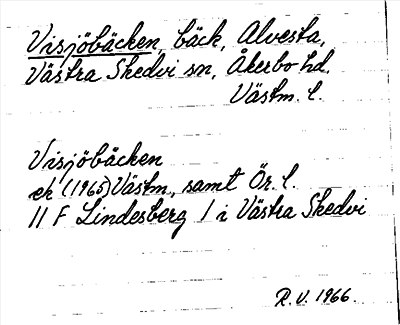 Visjöbäcken, bäck, Alvesta,
Västra Skedvi sn, Åkerbo hd.
Västm. l.
Visjöbäcken
ek (1965) Västm, samt Ör. l.
11 F Lindesberg 1 i Västra Skedvi
R. V. 1966.